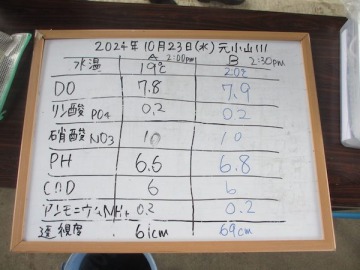 2024年10月23日(水) 元小山川
A 2:00pm B 2:30pm
水温 19℃ 20℃
DO 7.8 7.9
リン酸 PO4 0.2 0.2
硝酸 NO3 10 10
PH 6.6 6.8
COD 6 6
アンモニウム NH4 0.2 0.2
透視度 61cm 69cm